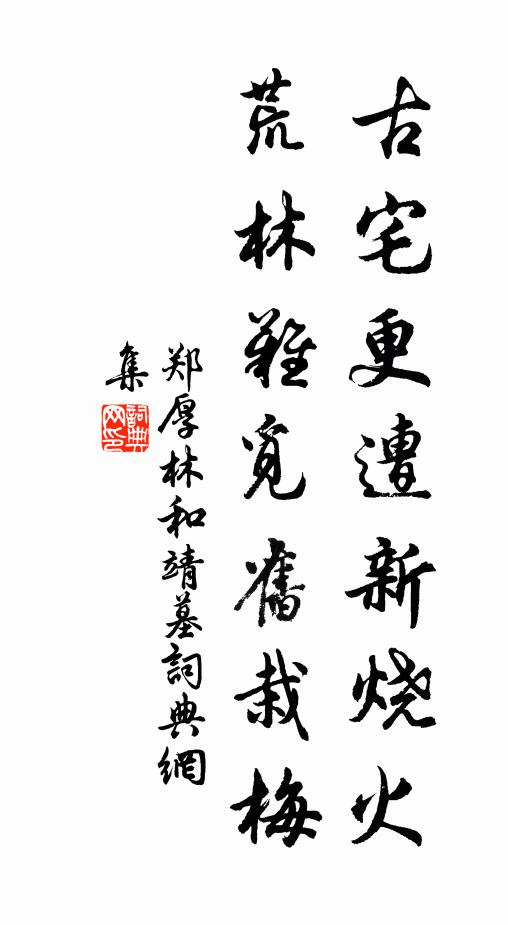 古宅更遭新烧火
荒林难觅舊栽梅
郑厚林和靖墓詞典網
集
詞典
网印